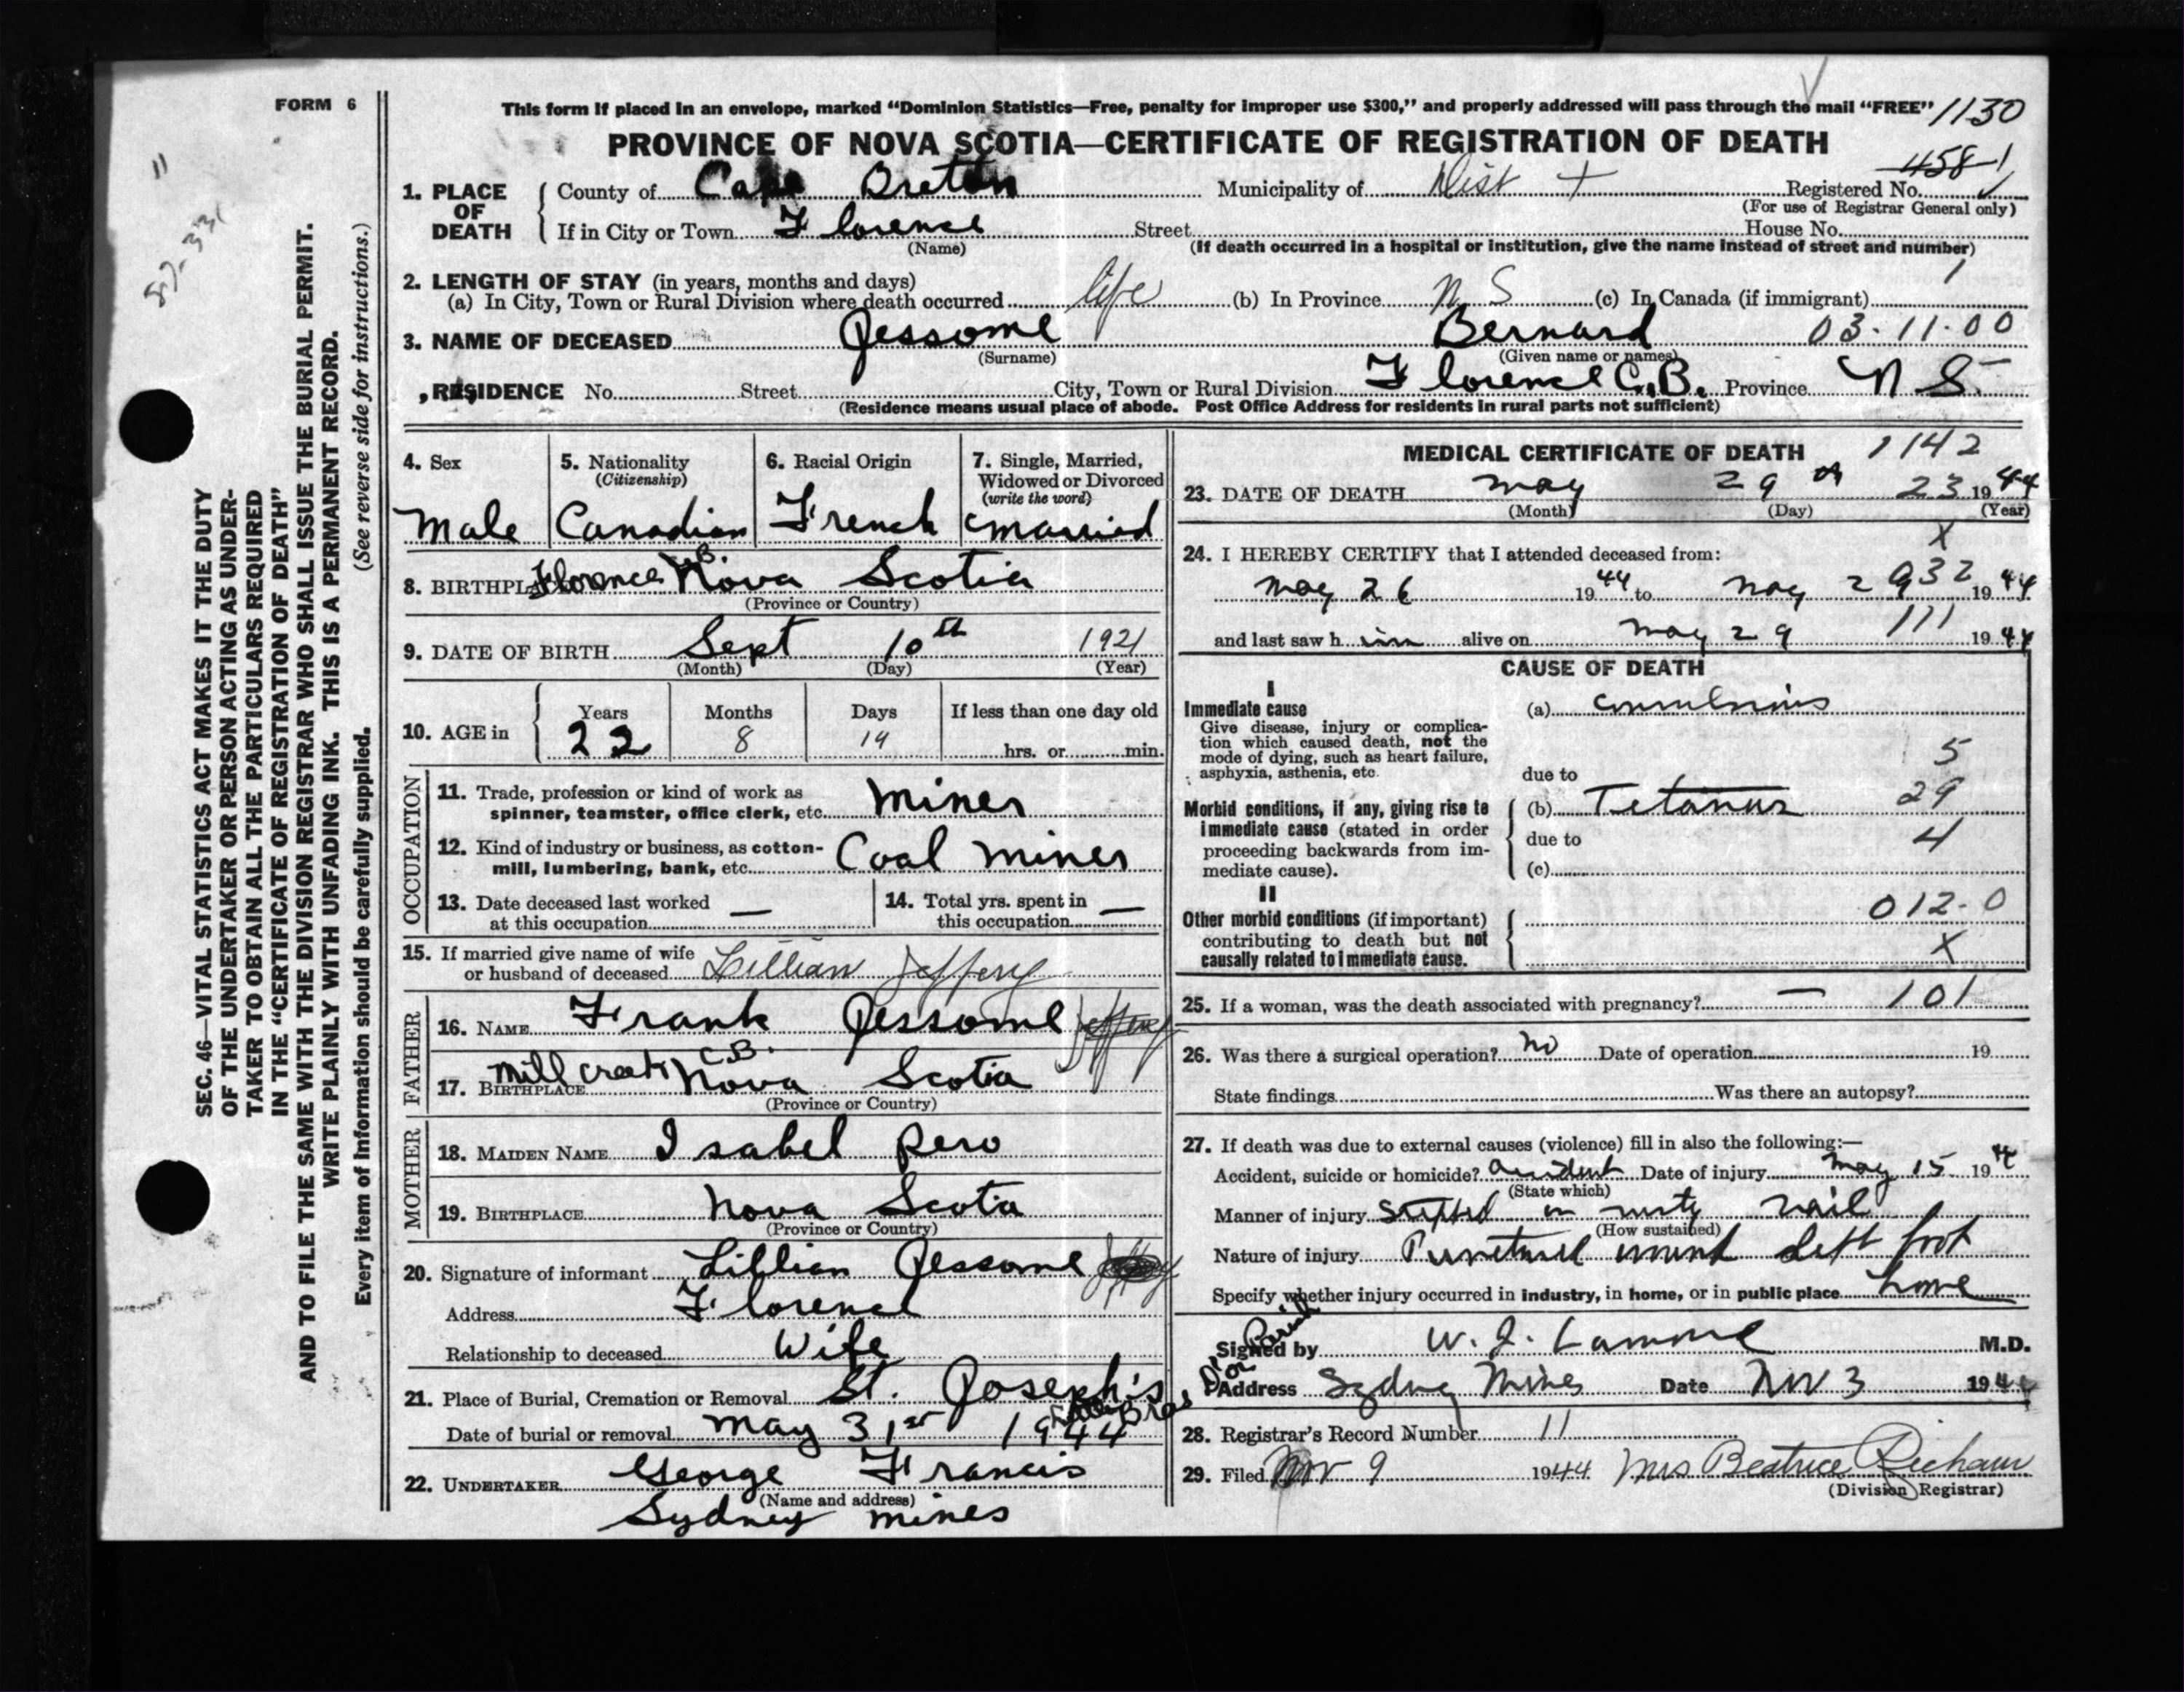 FORM 6
This form if placed in an envelope, marked “Dominion Statistics—Free, penalty for improper use $300,” and properly addressed will pass through the mail “FREE” 1130
PROVINCE OF NOVA SCOTIA—CERTIFICATE OF REGISTRATION OF DEATH
458-1
1. PLACE OF DEATH
County of Cape Breton Municipality of Dist Registered No.
(For use of Registrar General only)
If in City or Town Florence Street House No.
(Name) (If death occurred in a hospital or institution, give the name instead of street and number)
2. LENGTH OF STAY (in years, months and days) 1
(a) In City, Town or Rural Division where death occurred life (b) In Province N S (c) In Canada (if immigrant)
3. NAME OF DECEASED Jessome Bernard 03-11-00
(Surname) (Given name or names)
RESIDENCE No. Street City, Town or Rural Division Florence C.B. Province N S.
(Residence means usual place of abode. Post Office Address for residents in rural parts not sufficient)
4. Sex
Male
5. Nationality
(Citizenship)
Canadian
6. Racial Origin
French
7. Single, Married, Widowed or Divorced
(write the word)
Married
8. BIRTHPLACE Florence C.B. Nova Scotia
(Province or Country)
9. DATE OF BIRTH Sept 10th 1921
(Month) (Day) (Year)
10. AGE in
Years Months Days If less than one day old
22 8 19 hrs. or min.
OCCUPATION
11. Trade, profession or kind of work as
spinner, teamster, office clerk, etc. Miner
12. Kind of industry or business, as cotton-
mill, lumbering, bank, etc. Coal Miner
13. Date deceased last worked
at this occupation —
14. Total yrs. spent in
this occupation —
15. If married give name of wife
or husband of deceased Lillian Jeffery
FATHER
16. NAME Frank Jessome Jeffery
17. BIRTHPLACE Mill Creek C.B. Nova Scotia
(Province or Country)
MOTHER
18. MAIDEN NAME Isabel Pero
19. BIRTHPLACE Nova Scotia
(Province or Country)
20. Signature of informant Lillian Jessome
Address Florence
Relationship to deceased Wife
21. Place of Burial, Cremation or Removal St. Joseph's Little Bras D'or Parish
Date of burial or removal May 31st 1944
22. UNDERTAKER George Francis
(Name and address)
Sydney Mines
MEDICAL CERTIFICATE OF DEATH 1142
23. DATE OF DEATH May 29 23 1944
(Month) (Day) (Year)
X
24. I HEREBY CERTIFY that I attended deceased from:
May 26 1944 to May 29 932 1944
and last saw him alive on May 29 111 1944
CAUSE OF DEATH
I
Immediate cause
Give disease, injury or complica-
tion which caused death, not the
mode of dying, such as heart failure,
asphyxia, asthenia, etc.
(a) Convulsions
5
due to
Morbid conditions, if any, giving rise to
immediate cause (stated in order
proceeding backwards from im-
mediate cause).
(b) Tetanus 29
due to 4
(c)
II
Other morbid conditions (if important)
contributing to death but not
causally related to immediate cause.
012-0
X
25. If a woman, was the death associated with pregnancy? — 101
26. Was there a surgical operation? No Date of operation 19
State findings Was there an autopsy?
27. If death was due to external causes (violence) fill in also the following:—
Accident, suicide or homicide? accident Date of injury May 15 1944
(State which)
Manner of injury Stepped on rusty nail
(How sustained)
Nature of injury Punctured wound left foot
Specify whether injury occurred in industry, in home, or in public place home
Signed by W. J. M.D.
Address Sydney Mines Date Nov 3 1944
28. Registrar's Record Number 11
29. Filed Nov 9 1944 Mrs Beatrice
(Division Registrar)
11
SEC. 46—VITAL STATISTICS ACT MAKES IT THE DUTY
OF THE UNDERTAKER OR PERSON ACTING AS UNDER-
TAKER TO OBTAIN ALL THE PARTICULARS REQUIRED
IN THE “CERTIFICATE OF REGISTRATION OF DEATH”
AND TO FILE THE SAME WITH THE DIVISION REGISTRAR WHO SHALL ISSUE THE BURIAL PERMIT.
WRITE PLAINLY WITH UNFADING INK. THIS IS A PERMANENT RECORD.
Every item of information should be carefully supplied. (See reverse side for instructions.)